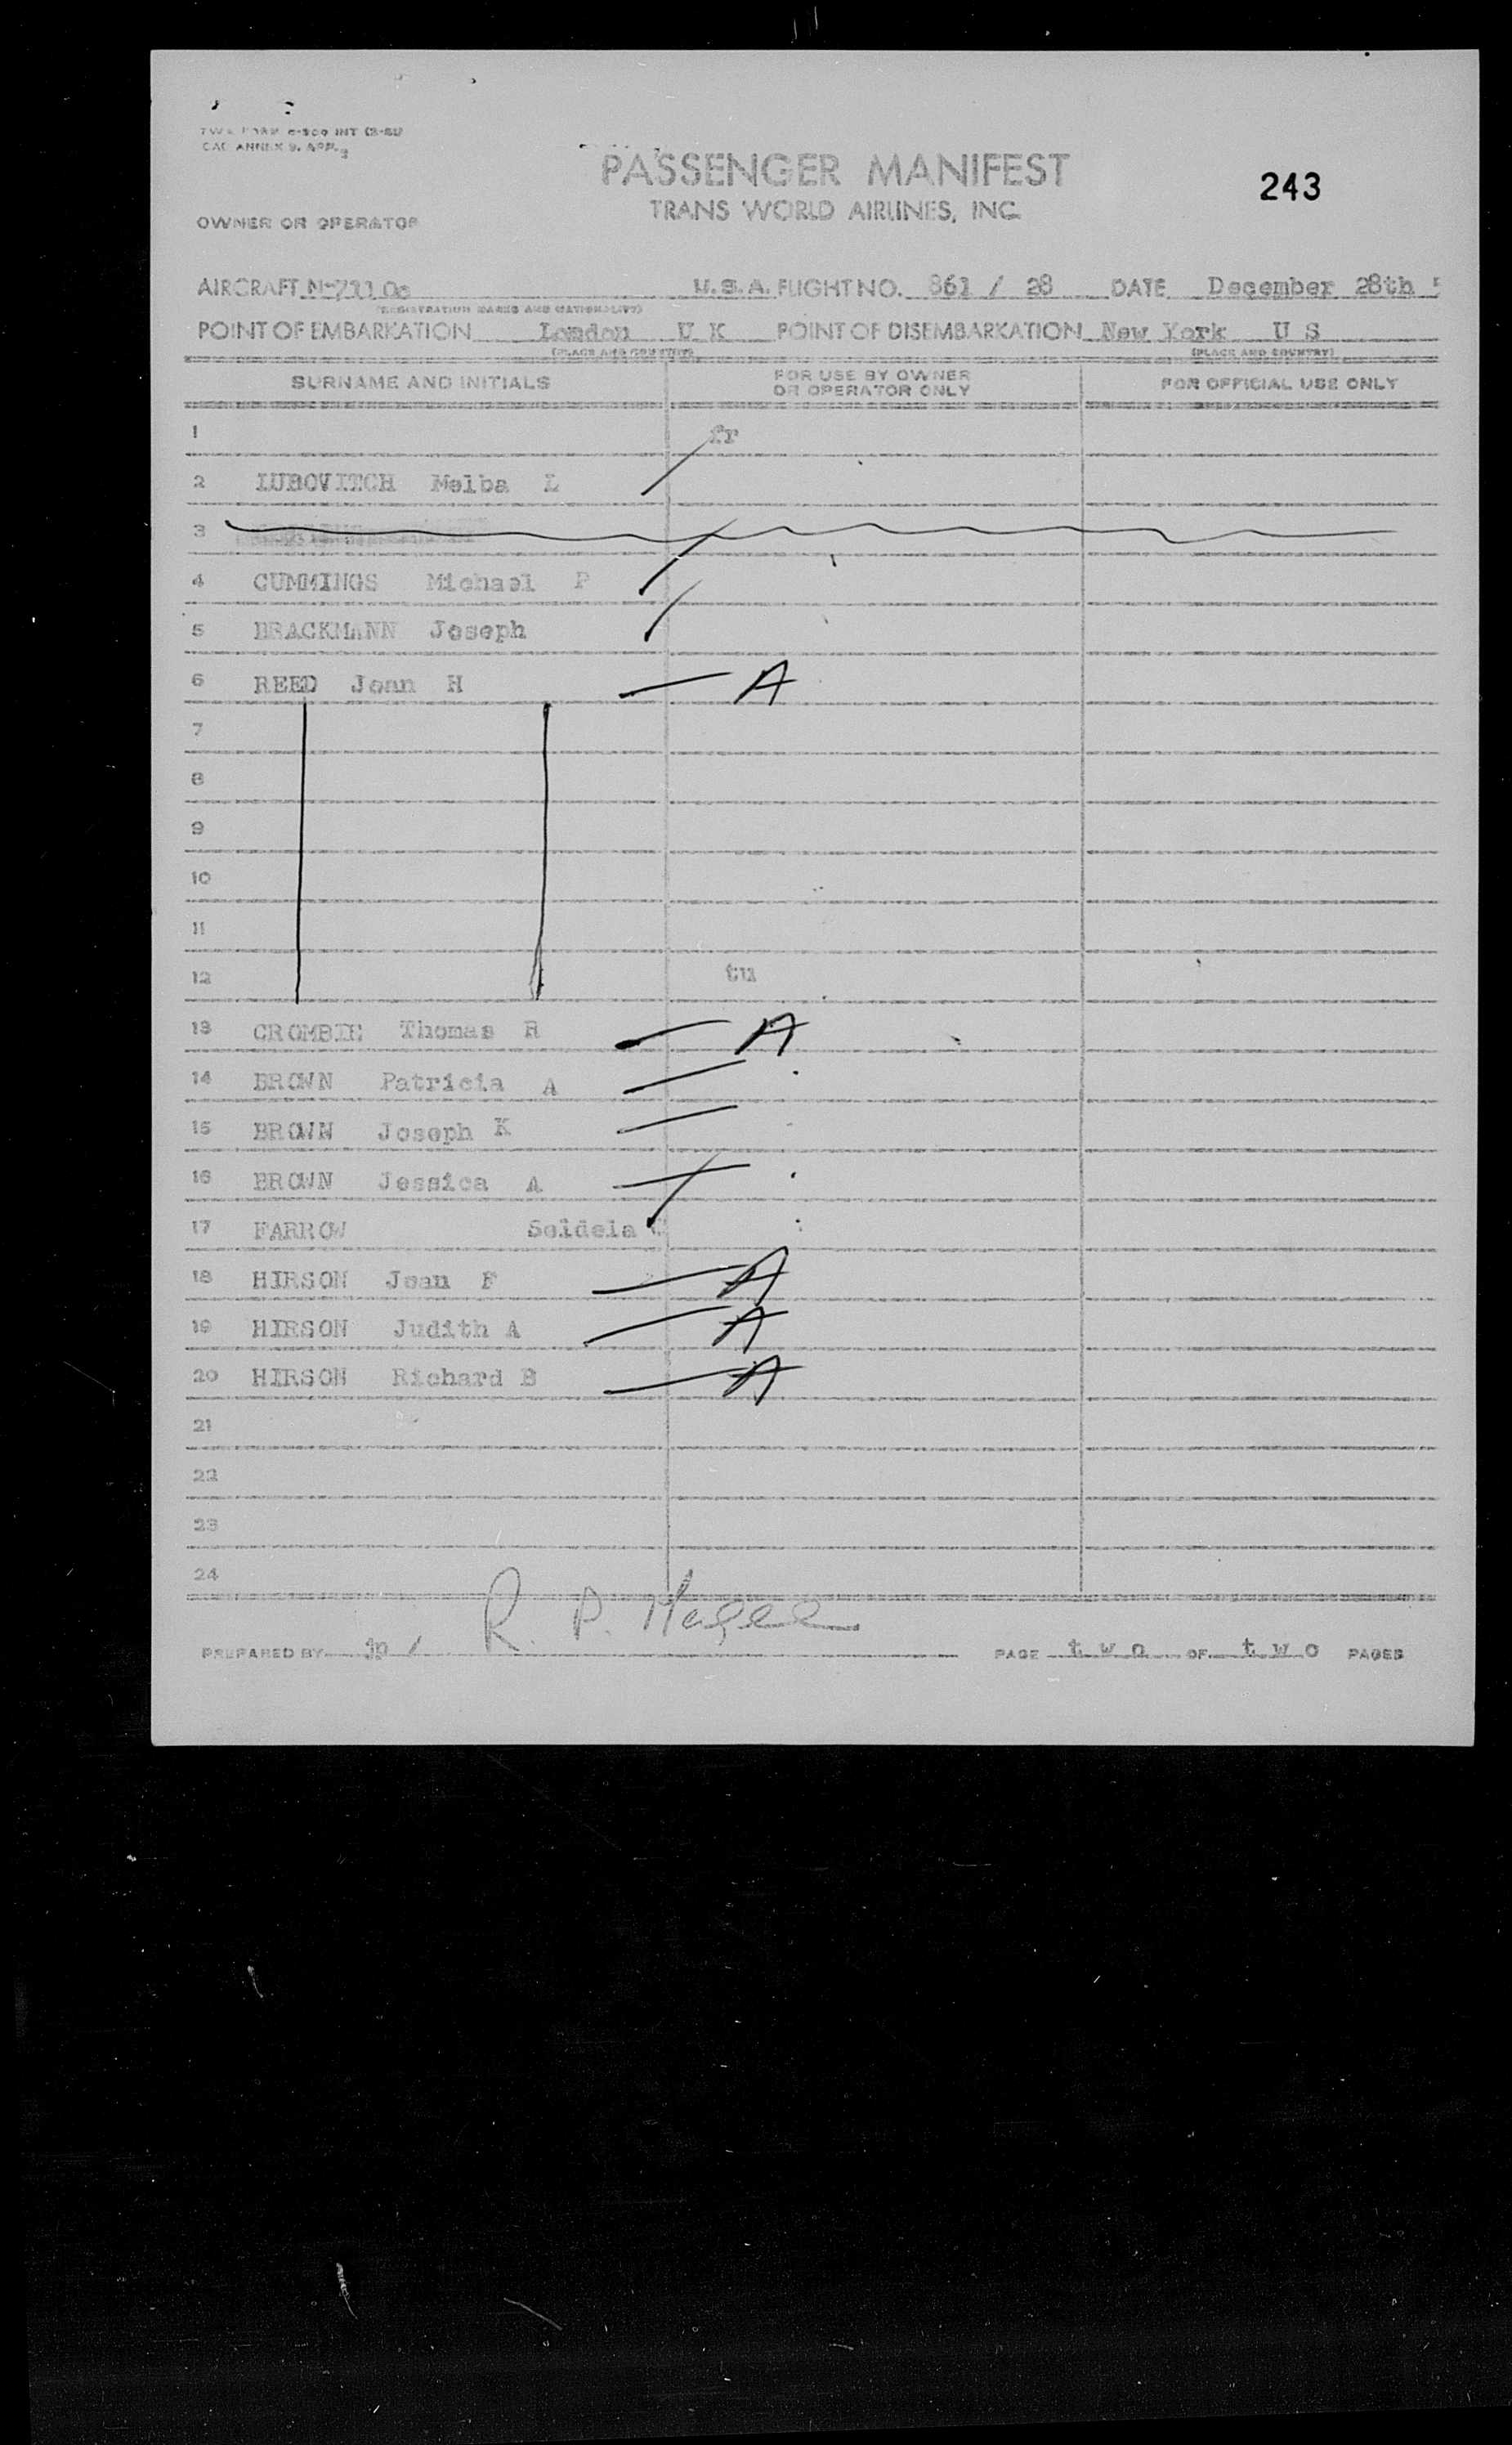 TWA FORM INT
ANNEX 9, APP. 3
PASSENGER MANIFEST
243
TRANS WORLD AIRLINES, INC.
OWNER OR OPERATOR
AIRCRAFT U.S.A. FLIGHT NO. 861 / 28 DATE December 28th 5
(REGISTRATION MARKS AND NATIONALITY)
POINT OF EMBARKATION London U K POINT OF DISEMBARKATION New York U S
(PLACE AND COUNTRY) (PLACE AND COUNTRY)
SURNAME AND INITIALS FOR USE BY OWNER OR OPERATOR ONLY FOR OFFICIAL USE ONLY
1 fr
2 LUBOVITCH Melba L
3
4 CUMMINGS Michael P
5 BRACKMANN Joseph
6 REED Jean H A
7
8
9
10
11
12 tu
13 CROMBIE Thomas R A
14 BROWN Patricia A
15 BROWN Joseph K
16 BROWN Jessica A
17 FARROW Seidela C
18 HIRSON Jean F A
19 HIRSON Judith A A
20 HIRSON Richard B A
21
22
23
24
PREPARED BY jp / R. P. Magee PAGE two OF two PAGES